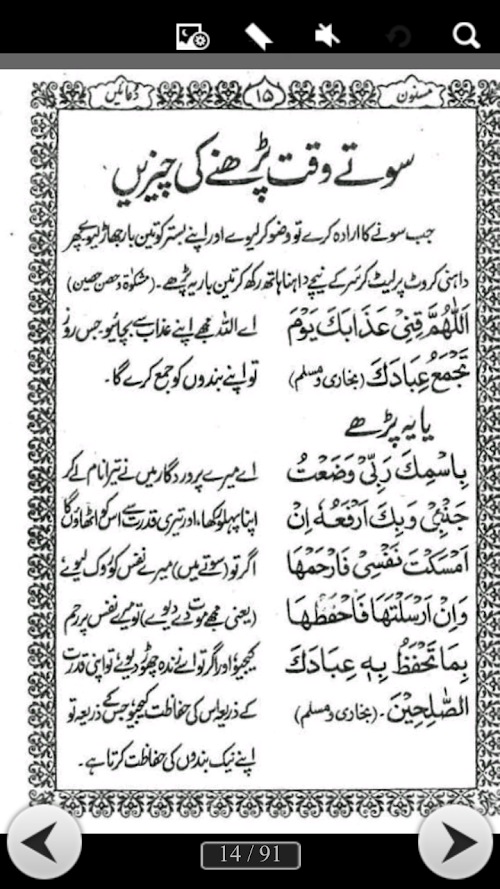 مسنون
۱۵
دعائیں
سوتے وقت پڑھنے کی چیزیں
جب سونے کا ارادہ کرے تو وضو کر لیوے اور اپنے بستر کو تین بار جھاڑ لیوے پھر
داہنی کروٹ پر لیٹ کر سر کے نیچے داہنا ہاتھ رکھ کر تین بار یہ پڑھے۔ (مشکوٰۃ و حصن حصین)
اَللّٰهُمَّ قِنِیْ عَذَابَكَ یَوْمَ
تَجْمَعُ عِبَادَكَ (بخاری و مسلم)
اے اللہ مجھے اپنے عذاب سے بچائیو جس روز
تو اپنے بندوں کو جمع کرے گا۔
یا یہ پڑھے
بِاسْمِكَ رَبِّیْ وَضَعْتُ
جَنْۢبِیْ وَبِكَ اَرْفَعُهٗ اِنْ
اَمْسَكْتَ نَفْسِیْ فَارْحَمْهَا
وَاِنْ اَرْسَلْتَهَا فَاحْفَظْهَا
بِمَا تَحْفَظُ بِهٖ عِبَادَكَ
الصّٰلِحِیْنَ۔ (بخاری و مسلم)
اے میرے پروردگار میں نے تیرا نام لے کر
اپنا پہلو رکھا، اور تیری قدرت سے اس کو اٹھاؤں گا
اگر تو (سوتے میں) میرے نفس کو روک لیوے
(یعنی مجھے موت دے دیوے) تو میرے نفس پر رحم
کیجیؤ اور اگر تو اسے زندہ چھوڑ دیوے تو اپنی قدرت
کے ذریعہ اس کی حفاظت کیجیؤ جس کے ذریعہ تو
اپنے نیک بندوں کی حفاظت کرتا ہے۔
14 / 91